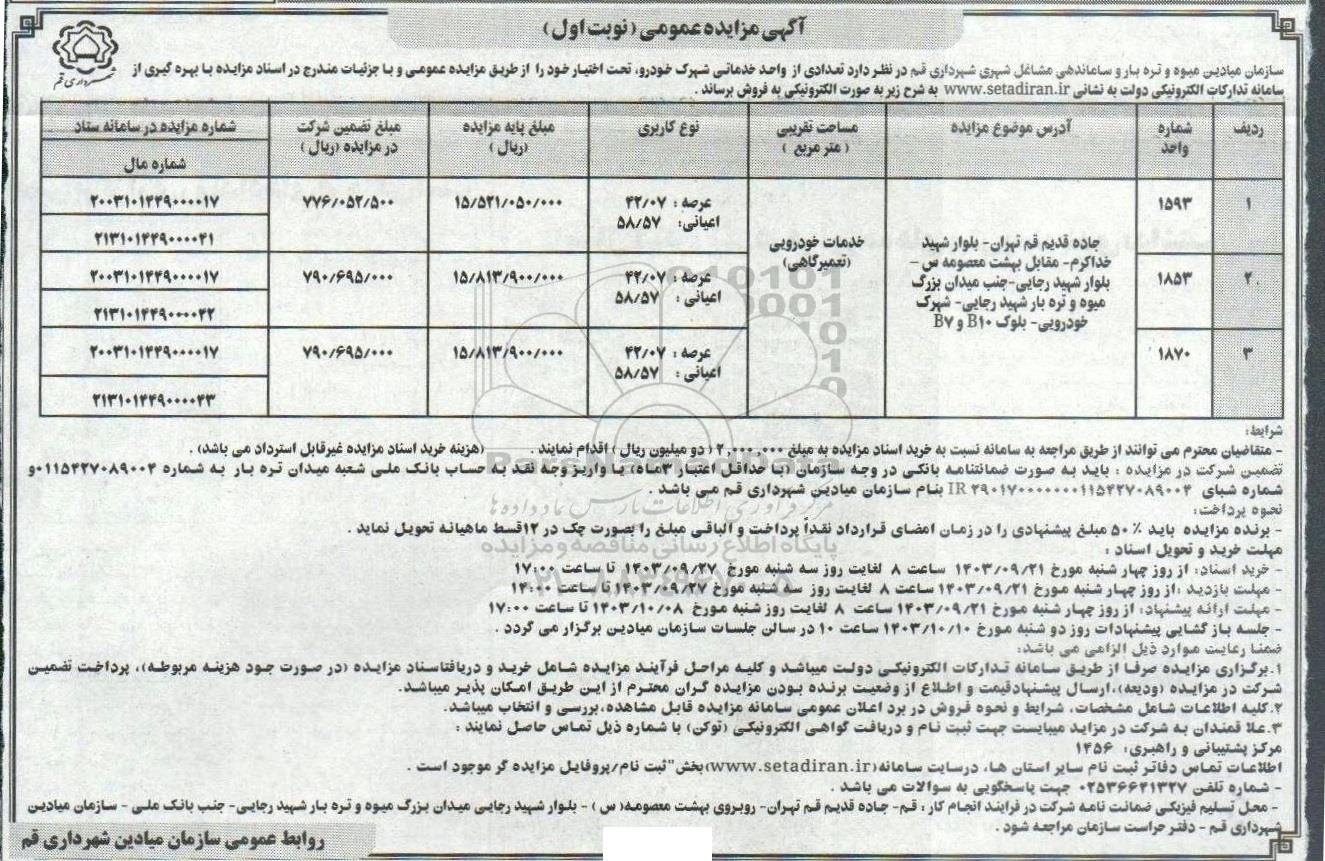 آگهی مزایده عمومی (نوبت اول)
شهرداری قم
سازمان میادین میوه و تره بار و ساماندهی مشاغل شهری شهرداری قم در نظر دارد تعدادی از واحد خدماتی شهرک خودرو، تحت اختیار خود را از طریق مزایده عمومی و با جزئیات مندرج در اسناد مزایده با بهره گیری از
سامانه تدارکات الکترونیکی دولت به نشانی www.setadiran.ir به شرح زیر به صورت الکترونیکی به فروش برساند .
ردیف | شماره واحد | آدرس موضوع مزایده | مساحت تقریبی (متر مربع) | نوع کاربری | مبلغ پایه مزایده (ریال) | مبلغ تضمین شرکت در مزایده (ریال) | شماره مزایده در سامانه ستاد
شماره مال
۱ | ۱۵۹۳ | عرصه : ۴۲/۰۷ | ۱۵/۵۲۱/۰۵۰/۰۰۰ | ۷۷۶/۰۵۲/۵۰۰ | ۲۰۰۳۱۰۱۴۴۹۰۰۰۰۱۷
اعیانی: ۵۸/۵۷ | ۲۱۳۱۰۱۴۴۹۰۰۰۰۴۱
جاده قدیم قم تهران- بلوار شهید
خداکرم- مقابل بهشت معصومه س -
بلوار شهید رجایی-جنب میدان بزرگ
میوه و تره بار شهید رجایی- شهرک
خودرویی- بلوک B۱۰ و B۷
خدمات خودرویی
(تعمیرگاهی)
۲ | ۱۸۵۳ | عرصه : ۴۲/۰۷ | ۱۵/۸۱۳/۹۰۰/۰۰۰ | ۷۹۰/۶۹۵/۰۰۰ | ۲۰۰۳۱۰۱۴۴۹۰۰۰۰۱۷
اعیانی : ۵۸/۵۷ | ۲۱۳۱۰۱۴۴۹۰۰۰۰۴۲
۳ | ۱۸۷۰ | عرصه : ۴۲/۰۷ | ۱۵/۸۱۳/۹۰۰/۰۰۰ | ۷۹۰/۶۹۵/۰۰۰ | ۲۰۰۳۱۰۱۴۴۹۰۰۰۰۱۷
اعیانی : ۵۸/۵۷ | ۲۱۳۱۰۱۴۴۹۰۰۰۰۴۳
شرایط:
- متقاضیان محترم می توانند از طریق مراجعه به سامانه نسبت به خرید اسناد مزایده به مبلغ ۲,۰۰۰,۰۰۰ ( دو میلیون ریال ) اقدام نمایند . (هزینه خرید اسناد مزایده غیرقابل استرداد می باشد) .
تضمین شرکت در مزایده : باید به صورت ضمانتنامه بانکی در وجه سازمان (با حداقل اعتبار ۳ماه) یا واریز وجه نقد به حساب بانک ملی شعبه میدان تره بار به شماره ۰۱۱۵۴۲۷۰۸۹۰۰۴و
شماره شبای IR ۲۹۰۱۷۰۰۰۰۰۰۰۱۱۵۴۲۷۰۸۹۰۰۴ بنام سازمان میادین شهرداری قم می باشد .
نحوه پرداخت:
- برنده مزایده باید ۵۰٪ مبلغ پیشنهادی را در زمان امضای قرارداد نقداً پرداخت و الباقی مبلغ را بصورت چک در ۱۲قسط ماهیانه تحویل نماید .
مهلت خرید و تحویل اسناد :
- خرید اسناد: از روز چهار شنبه مورخ ۱۴۰۳/۰۹/۲۱ ساعت ۸ لغایت روز سه شنبه مورخ ۱۴۰۳/۰۹/۲۷ تا ساعت ۱۷:۰۰
- مهلت بازدید :از روز چهار شنبه مورخ ۱۴۰۳/۰۹/۲۱ ساعت ۸ لغایت روز سه شنبه مورخ ۱۴۰۳/۰۹/۲۷ تا ساعت ۱۴:۰۰
- مهلت ارائه پیشنهاد: از روز چهار شنبه مورخ ۱۴۰۳/۰۹/۲۱ ساعت ۸ لغایت روز شنبه مورخ ۱۴۰۳/۱۰/۰۸ تا ساعت ۱۷:۰۰
- جلسه باز گشایی پیشنهادات روز دو شنبه مورخ ۱۴۰۳/۱۰/۱۰ ساعت ۱۰ در سالن جلسات سازمان میادین برگزار می گردد .
ضمنا رعایت موارد ذیل الزامی می باشد:
۱.برگزاری مزایده صرفا از طریق سامانه تدارکات الکترونیکی دولت میباشد و کلیه مراحل فرآیند مزایده شامل خرید و دریافتاسناد مزایده (در صورت جود هزینه مربوطه)، پرداخت تضمین
شرکت در مزایده (ودیعه)،ارسال پیشنهادقیمت و اطلاع از وضعیت برنده بودن مزایده گران محترم از این طریق امکان پذیر میباشد.
۲.کلیه اطلاعات شامل مشخصات، شرایط و نحوه فروش در برد اعلان عمومی سامانه مزایده قابل مشاهده،بررسی و انتخاب میباشد.
۳.علا قمندان به شرکت در مزاید میبایست جهت ثبت نام و دریافت گواهی الکترونیکی (توکن) با شماره ذیل تماس حاصل نمایند :
مرکز پشتیبانی و راهبری: ۱۴۵۶
اطلاعات تماس دفاتر ثبت نام سایر استان ها، درسایت سامانه(www.setadiran.ir)بخش"ثبت نام/پروفایل مزایده گر موجود است .
- شماره تلفن ۰۲۵۳۶۶۴۱۳۲۷ جهت پاسخگویی به سوالات می باشد .
- محل تسلیم فیزیکی ضمانت نامه شرکت در فرایند انجام کار : قم- جاده قدیم قم تهران- روبروی بهشت معصومه( س ) - بلوار شهید رجایی میدان بزرگ میوه و تره بار شهید رجایی- جنب بانک ملی - سازمان میادین
شهرداری قم - دفتر حراست سازمان مراجعه شود .
روابط عمومی سازمان میادین شهرداری قم
پایگاه اطلاع رسانی مناقصه و مزایده